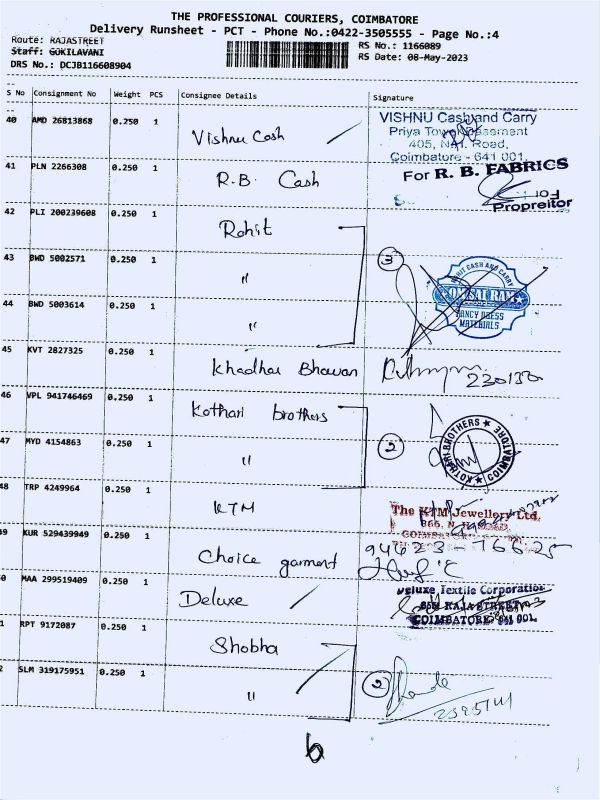 THE PROFESSIONAL COURIERS, COIMBATORE
Delivery Runsheet - PCT - Phone No.:0422-3505555 - Page No.:4
Route: RAJASTREET
Staff: GOKILAVANI
DRS No.: DCJB116608904
RS No.: 1166089
RS Date: 08-May-2023
S No Consignment No Weight PCS Consignee Details Signature
40 AMD 26813868 0.250 1 Vishnu Cash
VISHNU Cash and Carry
Priya Town Basement
405, N.H. Road,
Coimbatore - 641 001.
41 PLN 2266308 0.250 1 R.B. Cash
For R. B. FABRICS
For
Propreitor
42 PLI 200239608 0.250 1 Rohit
43 BWD 5002571 0.250 1 "
3
ROHIT CASH AND CARRY
OMSAI RAM
FANCY DRESS
MATERIALS
44 BWD 5003614 0.250 1 "
45 KVT 2827325 0.250 1 Khadhar Bhavan
46 VPL 941746469 0.250 1 Kothari brothers
47 MYD 4154863 0.250 1 "
2
KOTHARI BROTHERS
COIMBATORE
48 TRP 4249964 0.250 1 KTM
The KTM Jewellery Ltd.
49 KUR 529439949 0.250 1 Choice garment
94423-76625
0 MAA 299519409 0.250 1 Deluxe
Deluxe Textile Corporation
RAJA STREET
COIMBATORE 641 001.
1 RPT 9172087 0.250 1 Shobha
2 SLM 319175951 0.250 1 "
2
6